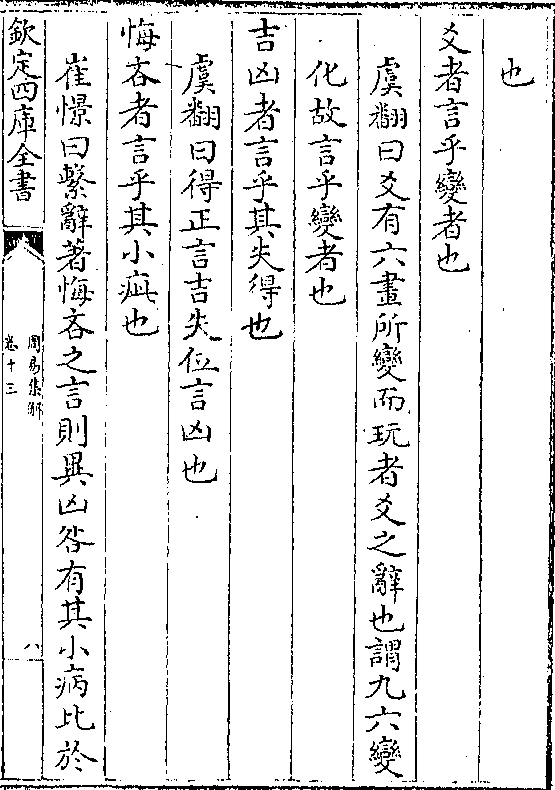 也
爻者言乎變者也
虞翻曰爻有六畫所變而玩者爻之辭也謂九六變
化故言乎變者也
吉凶者言乎其失得也
虞翻曰得正言吉失位言凶也
悔吝者言乎其小疵也
崔憬曰繫辭著悔吝之言則異凶咎有其小病比於
欽定四庫全書
周易集解
卷十三
八